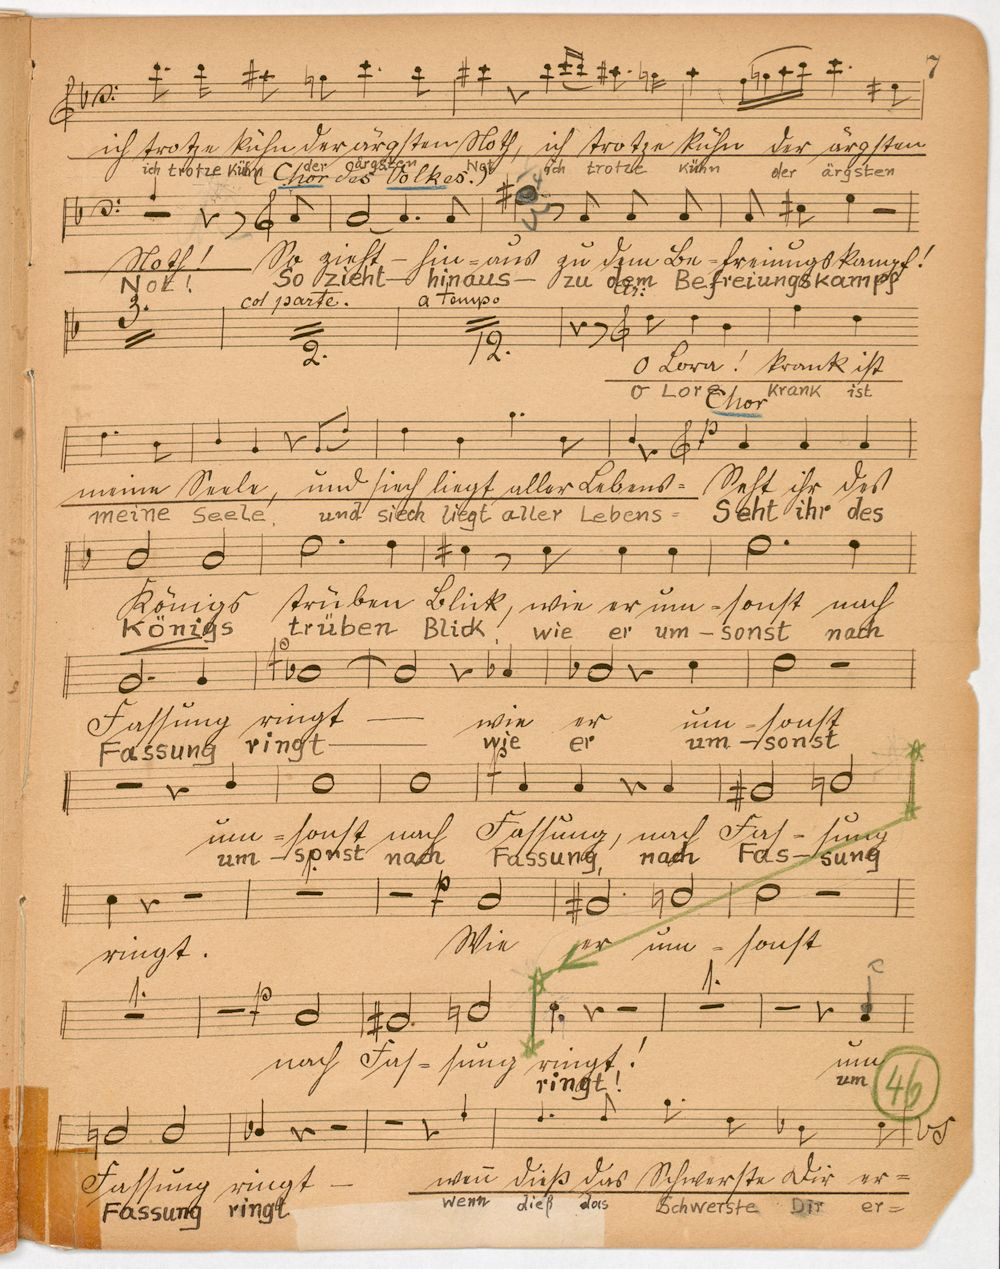 7
ich trotze kühn der ärgsten Noth, ich trotze kühn der ärgsten
ich trotze kühn der ärgsten Not ich trotze kühn der ärgsten
(Chor des Volkes.)
Noth! So zieht- hin=aus zu dem Be=freiungskampf!
Not! So zieht- hinaus- zu dem Befreiungskampf
3. col parte. a tempo
2. 12.
O Lora! krank ist
O Lore krank ist
Chor
meine Seele, und siech liegt aller Lebens= Seht ihr des
meine Seele, und siech liegt aller Lebens= Seht ihr des
Königs trüben Blick, wie er um-sonst nach
Königs trüben Blick, wie er um-sonst nach
Fassung ringt — wie er um-sonst
Fassung ringt — wie er um-sonst
um-sonst nach Fassung, nach Fas-sung
um-sonst nach Fassung, nach Fas-sung
1.
ringt. Wie er um-sonst
1. 1.
nach Fas-sung ringt! um
ringt! um
46
VS
Fassung ringt — wenn dieß das Schwerste Dir er=
Fassung ringt wenn dieß das Schwerste Dir er=